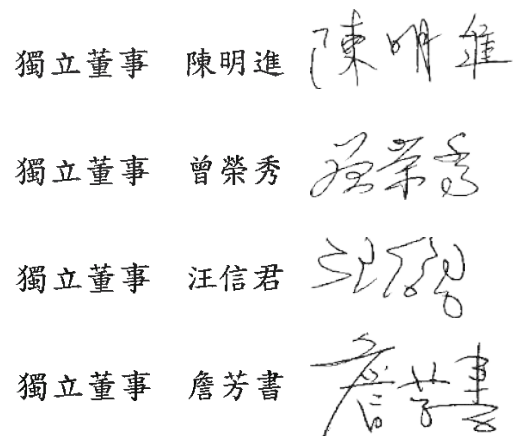 獨立董事 陳明進 陳明進
獨立董事 曾榮秀 曾榮秀
獨立董事 汪信君 汪信君
獨立董事 詹芳書 詹芳書